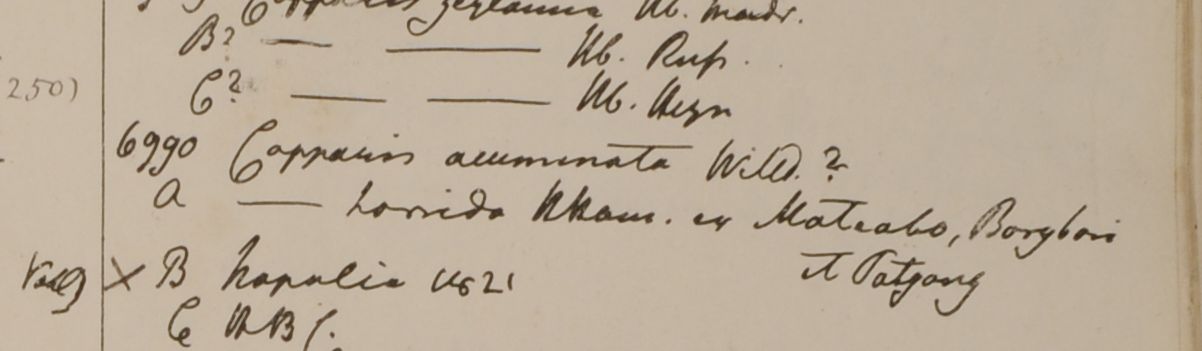 Capparis zeylanica Hb. Madr.
B? — — Hb. Ruf.
250)
C? — — Hb. Heyn
6990 Capparis acuminata Willd. ?
a — horrida HHam. ex Mateabo, Borybori
et Patgong
Wall) × B Napalia 1821
C HBC.